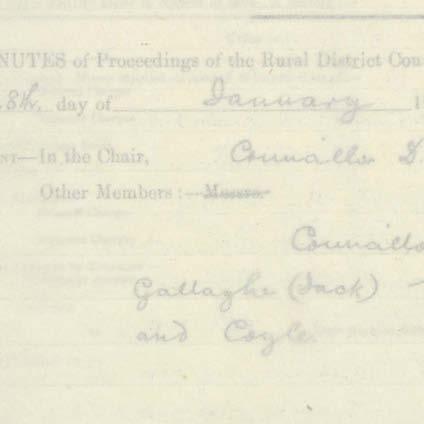 NUTES of Proceedings of the Rural District Cou
8th day of January 1
NT—In the Chair, Councillor D.
Other Members :—Messrs.
Councillo
Gallagher (Jack)
and Coyle.